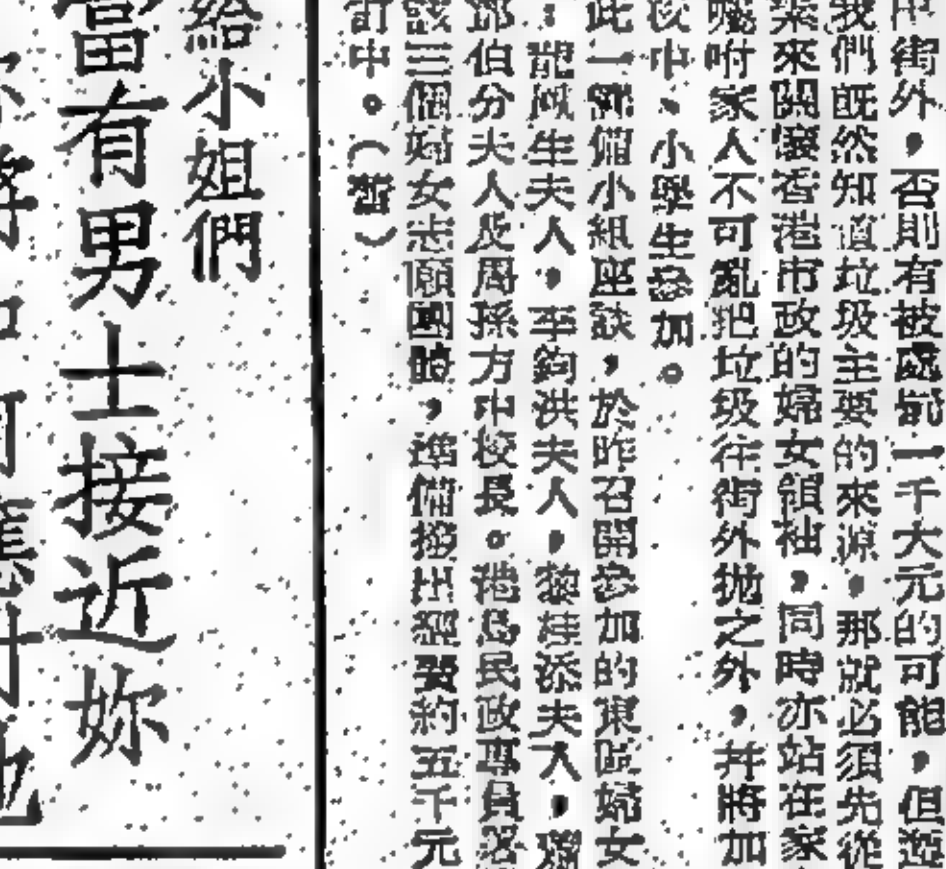 街外，否則有被處罰一千大元的可能，但
我們既然知道垃圾主要的來源，那就必須先從
來關懷香港市政的婦女領袖，同時亦站在家
囑咐家人不可亂把垃圾往街外拋之外，并將加
中、小學生參加。
此一籌備小組座談，於昨召開參加的東區婦女
生夫人，李鈞洪夫人，黎桂添夫人，
鄧伯分夫人及周孫方中校長。港島民政專員
該三個婦女志願團體，準備撥出經費約五千元
訂中。（哲）
給小姐們
當有男士接近妳